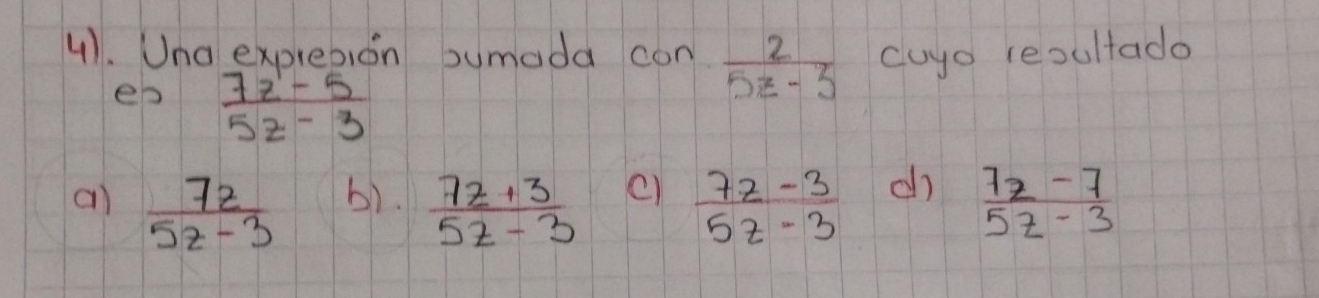 4). Una expresión sumada con \frac{2}{5z-3} cuyo resultado
es \frac{7z-5}{5z-3}
a) \frac{7z}{5z-3} b). \frac{7z+3}{5z-3} c) \frac{7z-3}{5z-3} d) \frac{7z-7}{5z-3}